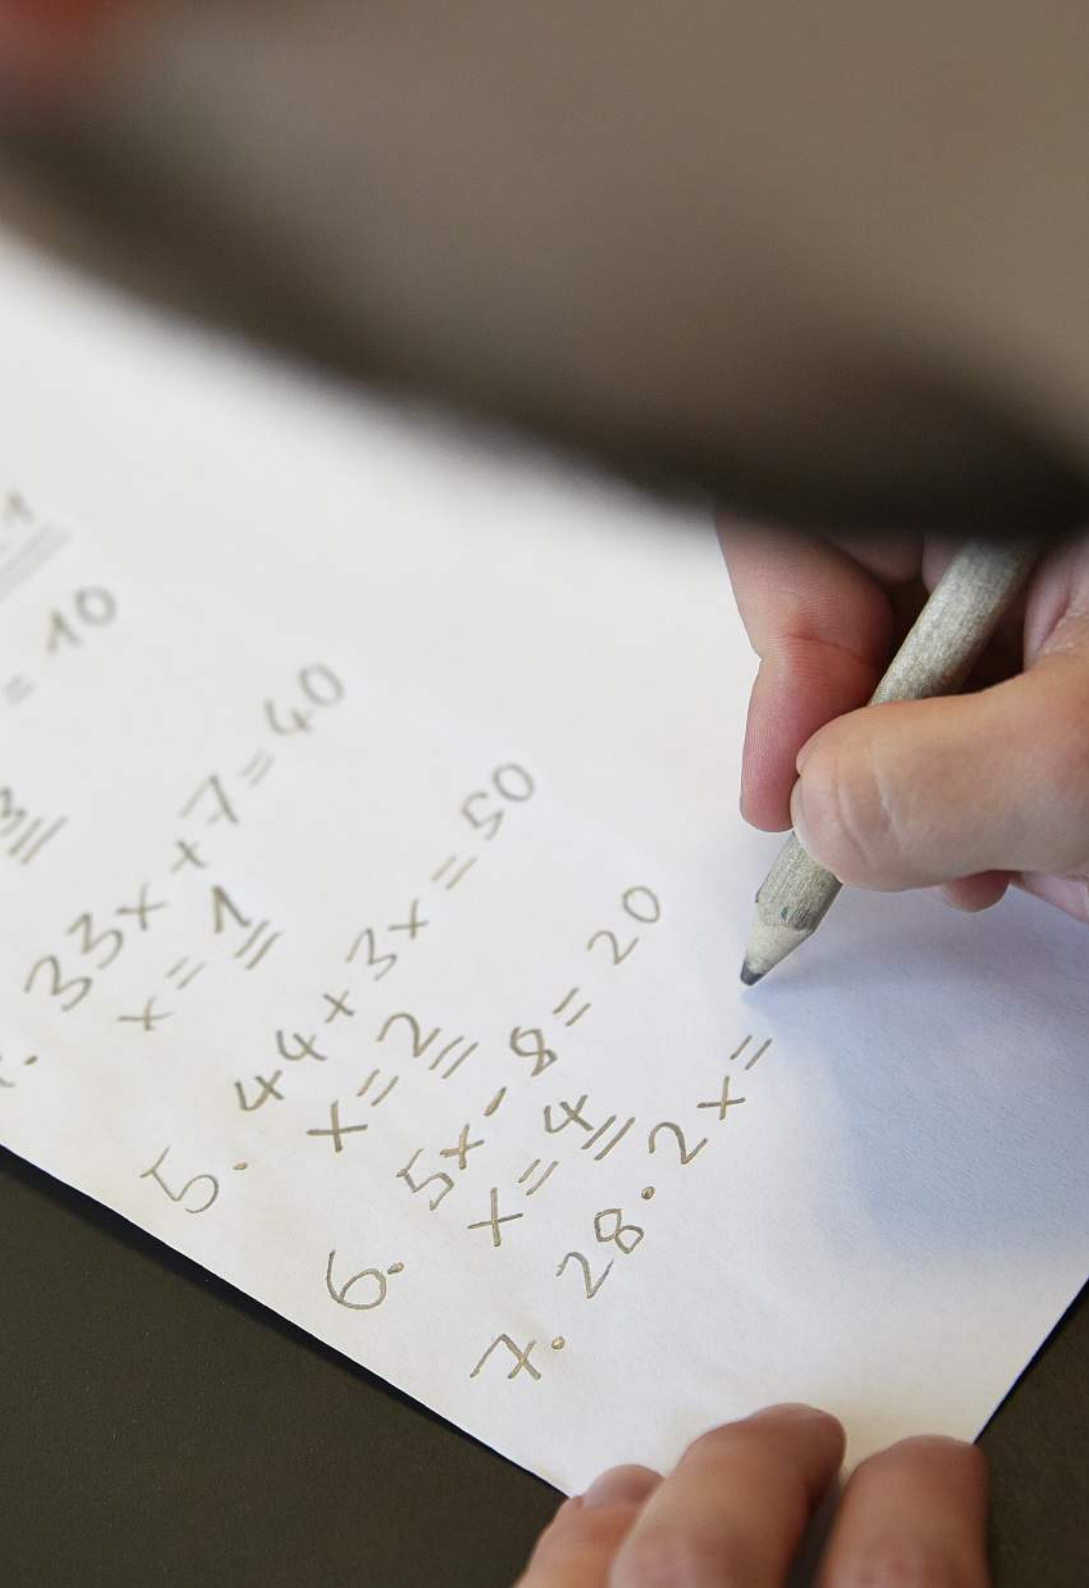 1
= 10
3
33x + 7 = 40
x = 1
5. 44 + 3x = 50
x = 2
6. 5x - 8 = 20
x = 4
7. 28 · 2x =